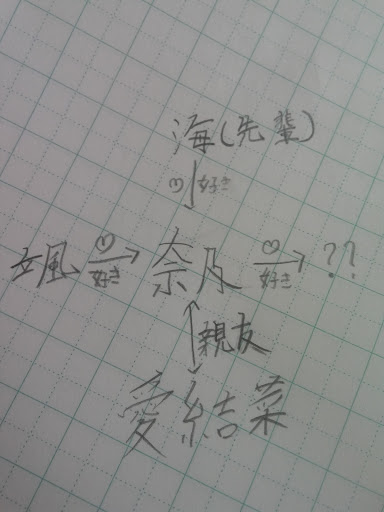 海(先輩)
♡ 好き
颯 ♡ 好き 奈及 ♡ 好き ??
親友
愛結菜